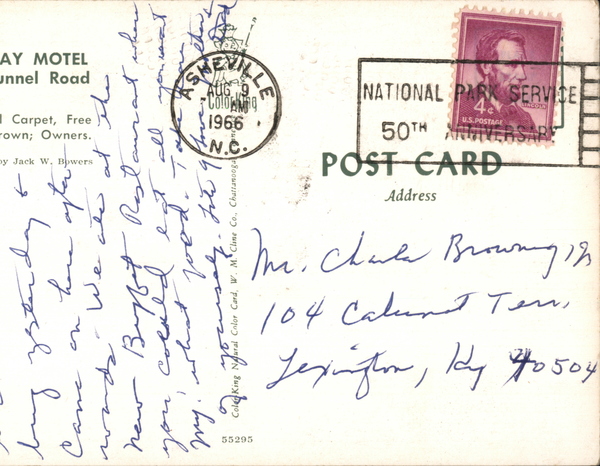 AY MOTEL
unnel Road
l Carpet, Free
rown; Owners.
by Jack W. Bowers
long yesterday &
Came on here after
wards. We ate at the
New Buffet Restaurant where
you could eat all you want
My, what food. Take
of yourself.
ColorKing Natural Color Card, W. M. Cline Co., Chattanooga
55295
ASHEVILLE
AUG 9
AM
1966
N.C.
ColorKing
NATIONAL PARK SERVICE
50TH ANNIVERSARY
LINCOLN
4¢
U.S. POSTAGE
POST CARD
Address
Mr. Charles Browning Jr
104 Calumet Terr.
Lexington, Ky 40504